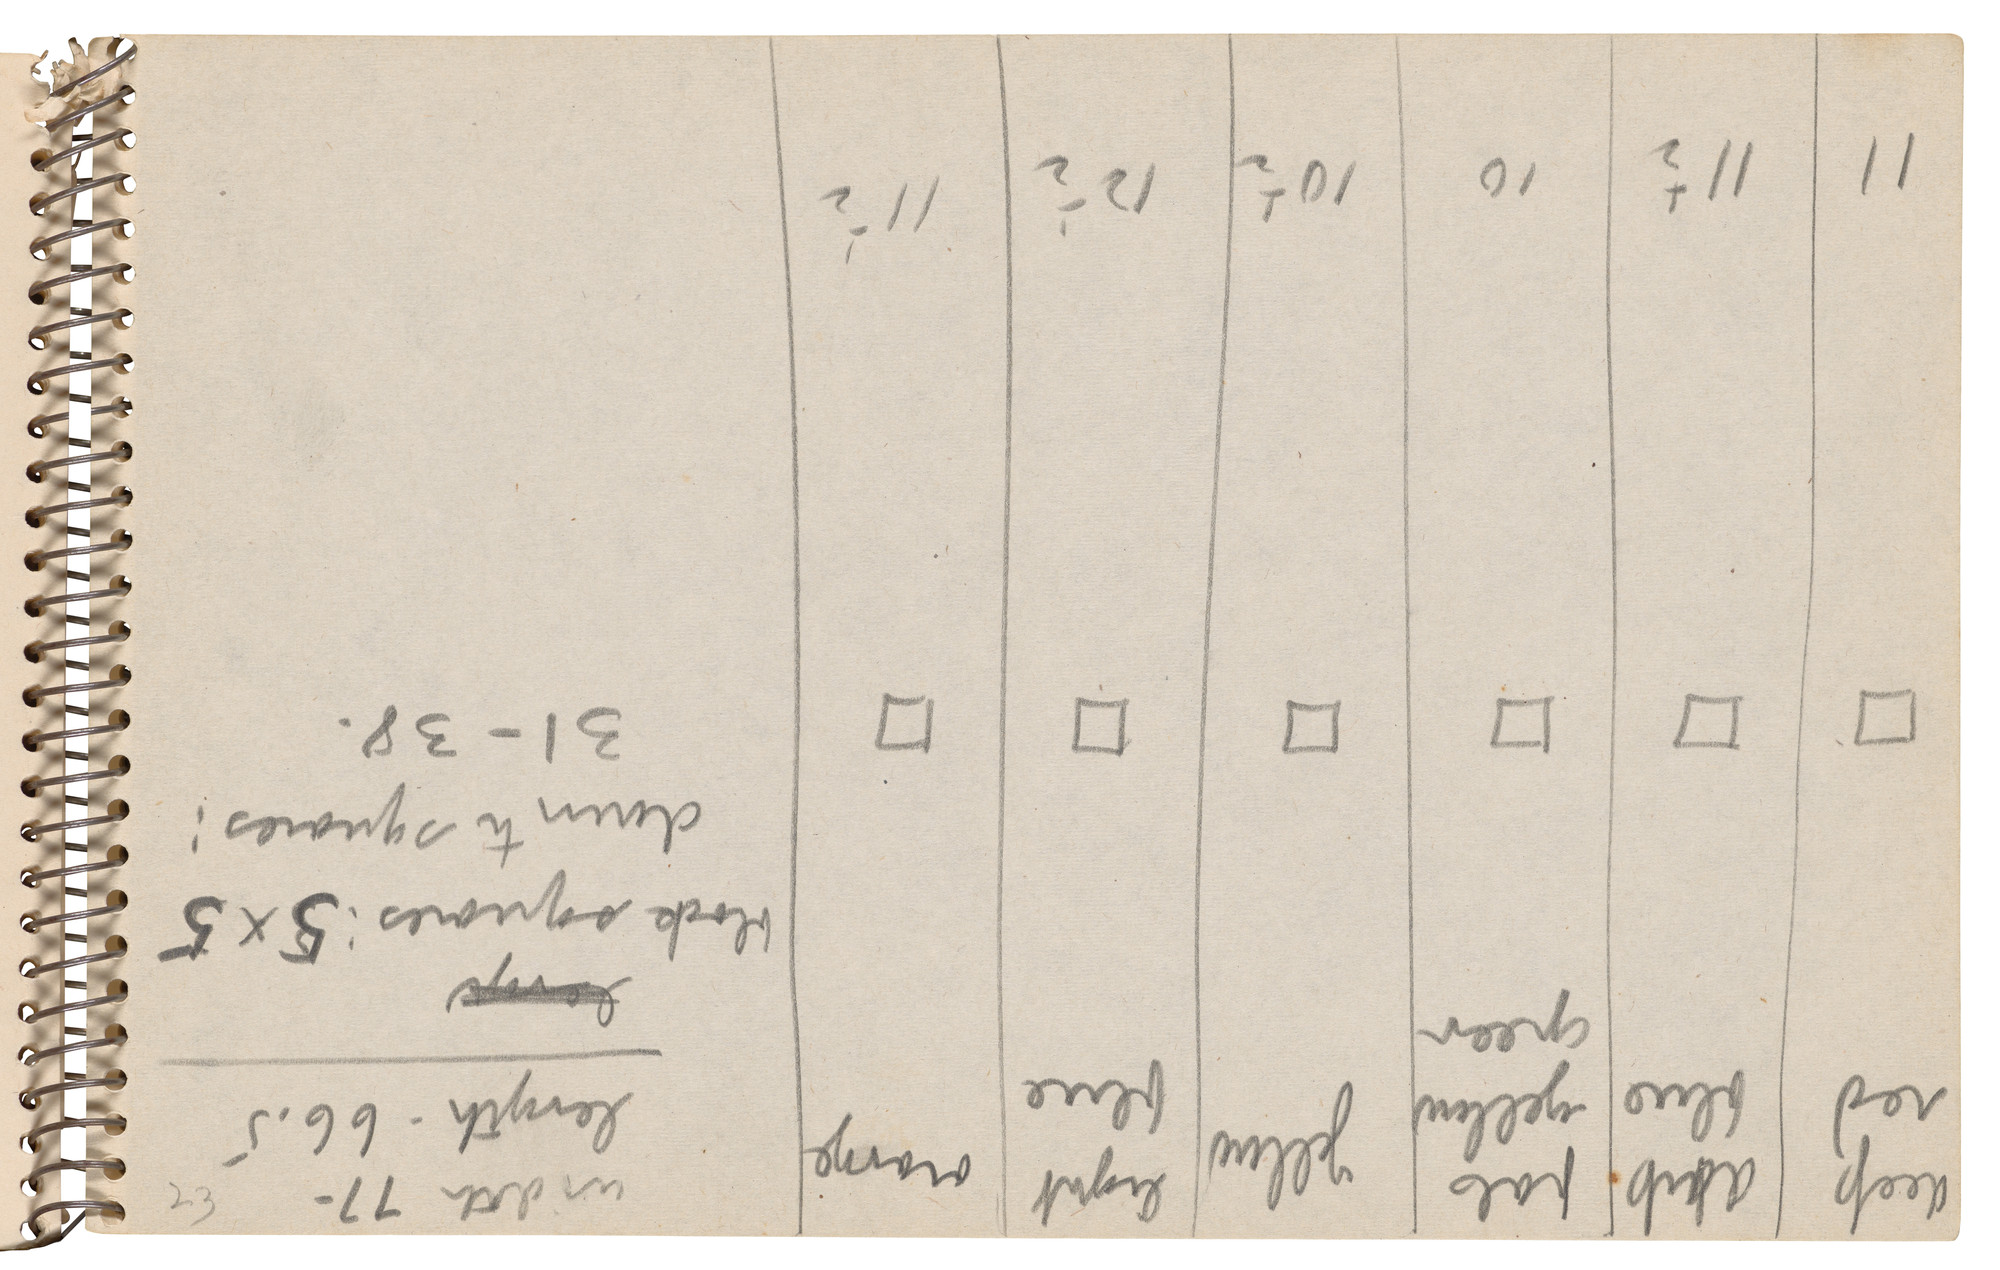 deep red
dark blue
pale yellow green
yellow
light blue
orange
width 77-
length - 66.5
23
black squares: 5 x 5
down to squares:
31 - 38.
11
11 ½
10
10 ½
12 ½
11 ½